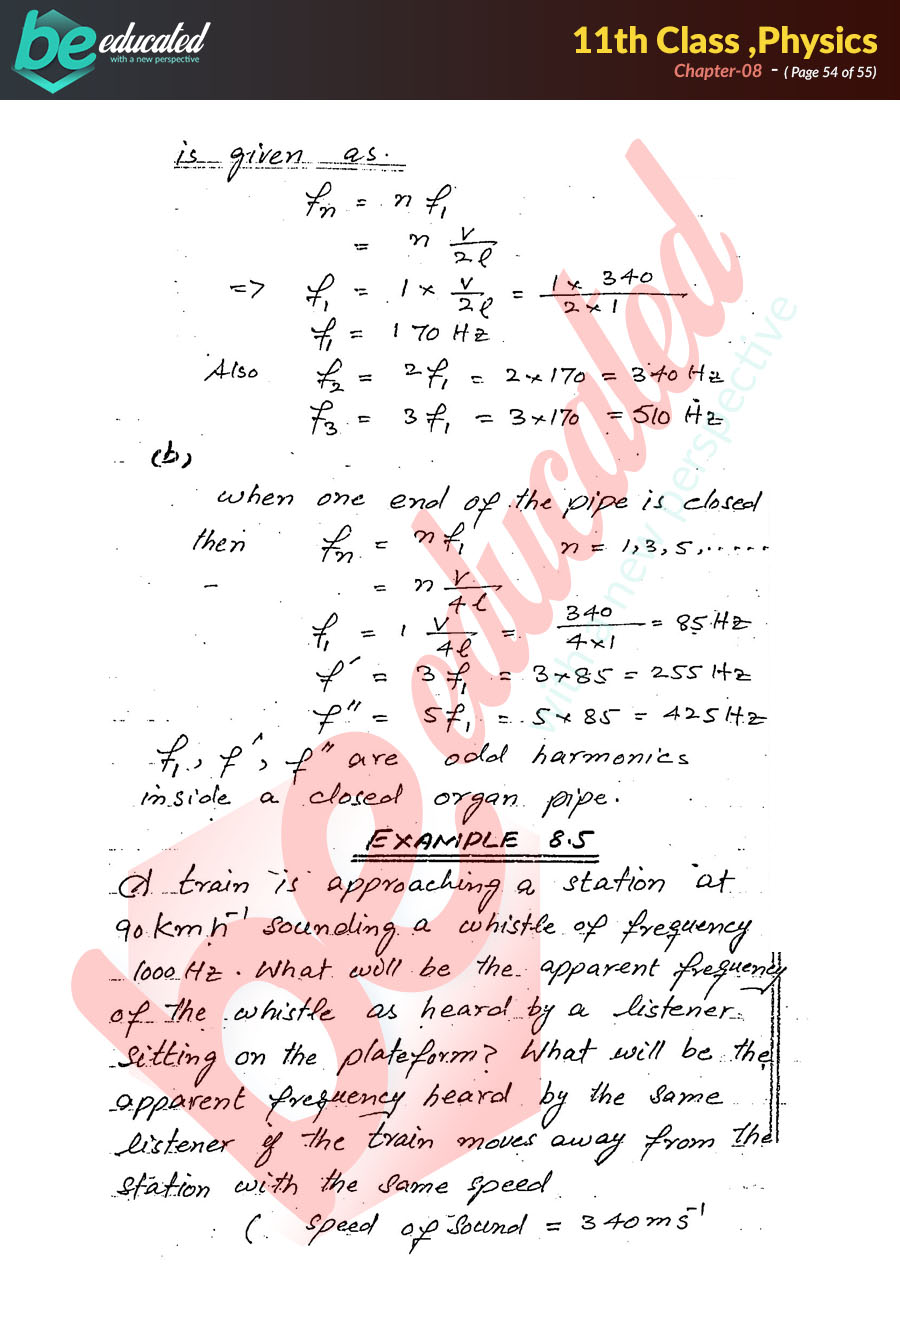 be educated
with a new perspective
11th Class ,Physics
Chapter-08 - ( Page 54 of 55)
is given as.
fn = n f1
= n v/2l
=> f1 = 1 × v/2l = 1 × 340/2×1
f1 = 170 Hz
Also f2 = 2f1 = 2×170 = 340 Hz
f3 = 3f1 = 3×170 = 510 Hz
(b)
when one end of the pipe is closed
then fn = nf1 n = 1,3,5,.....
= n v/4l
f1 = 1 v/4l = 340/4×1 = 85 Hz
f′ = 3f1 = 3×85 = 255 Hz
f″ = 5f1 = 5×85 = 425 Hz
f1, f′, f″ are odd harmonics
inside a closed organ pipe.
EXAMPLE 8.5
A train is approaching a station at
90 Km h⁻¹ sounding a whistle of frequency
1000 Hz. What will be the apparent frequency
of the whistle as heard by a listener
sitting on the plateform? What will be the
apparent frequency heard by the same
listener if the train moves away from the
station with the same speed
( speed of sound = 340 m s⁻¹
be educated
with a new perspective